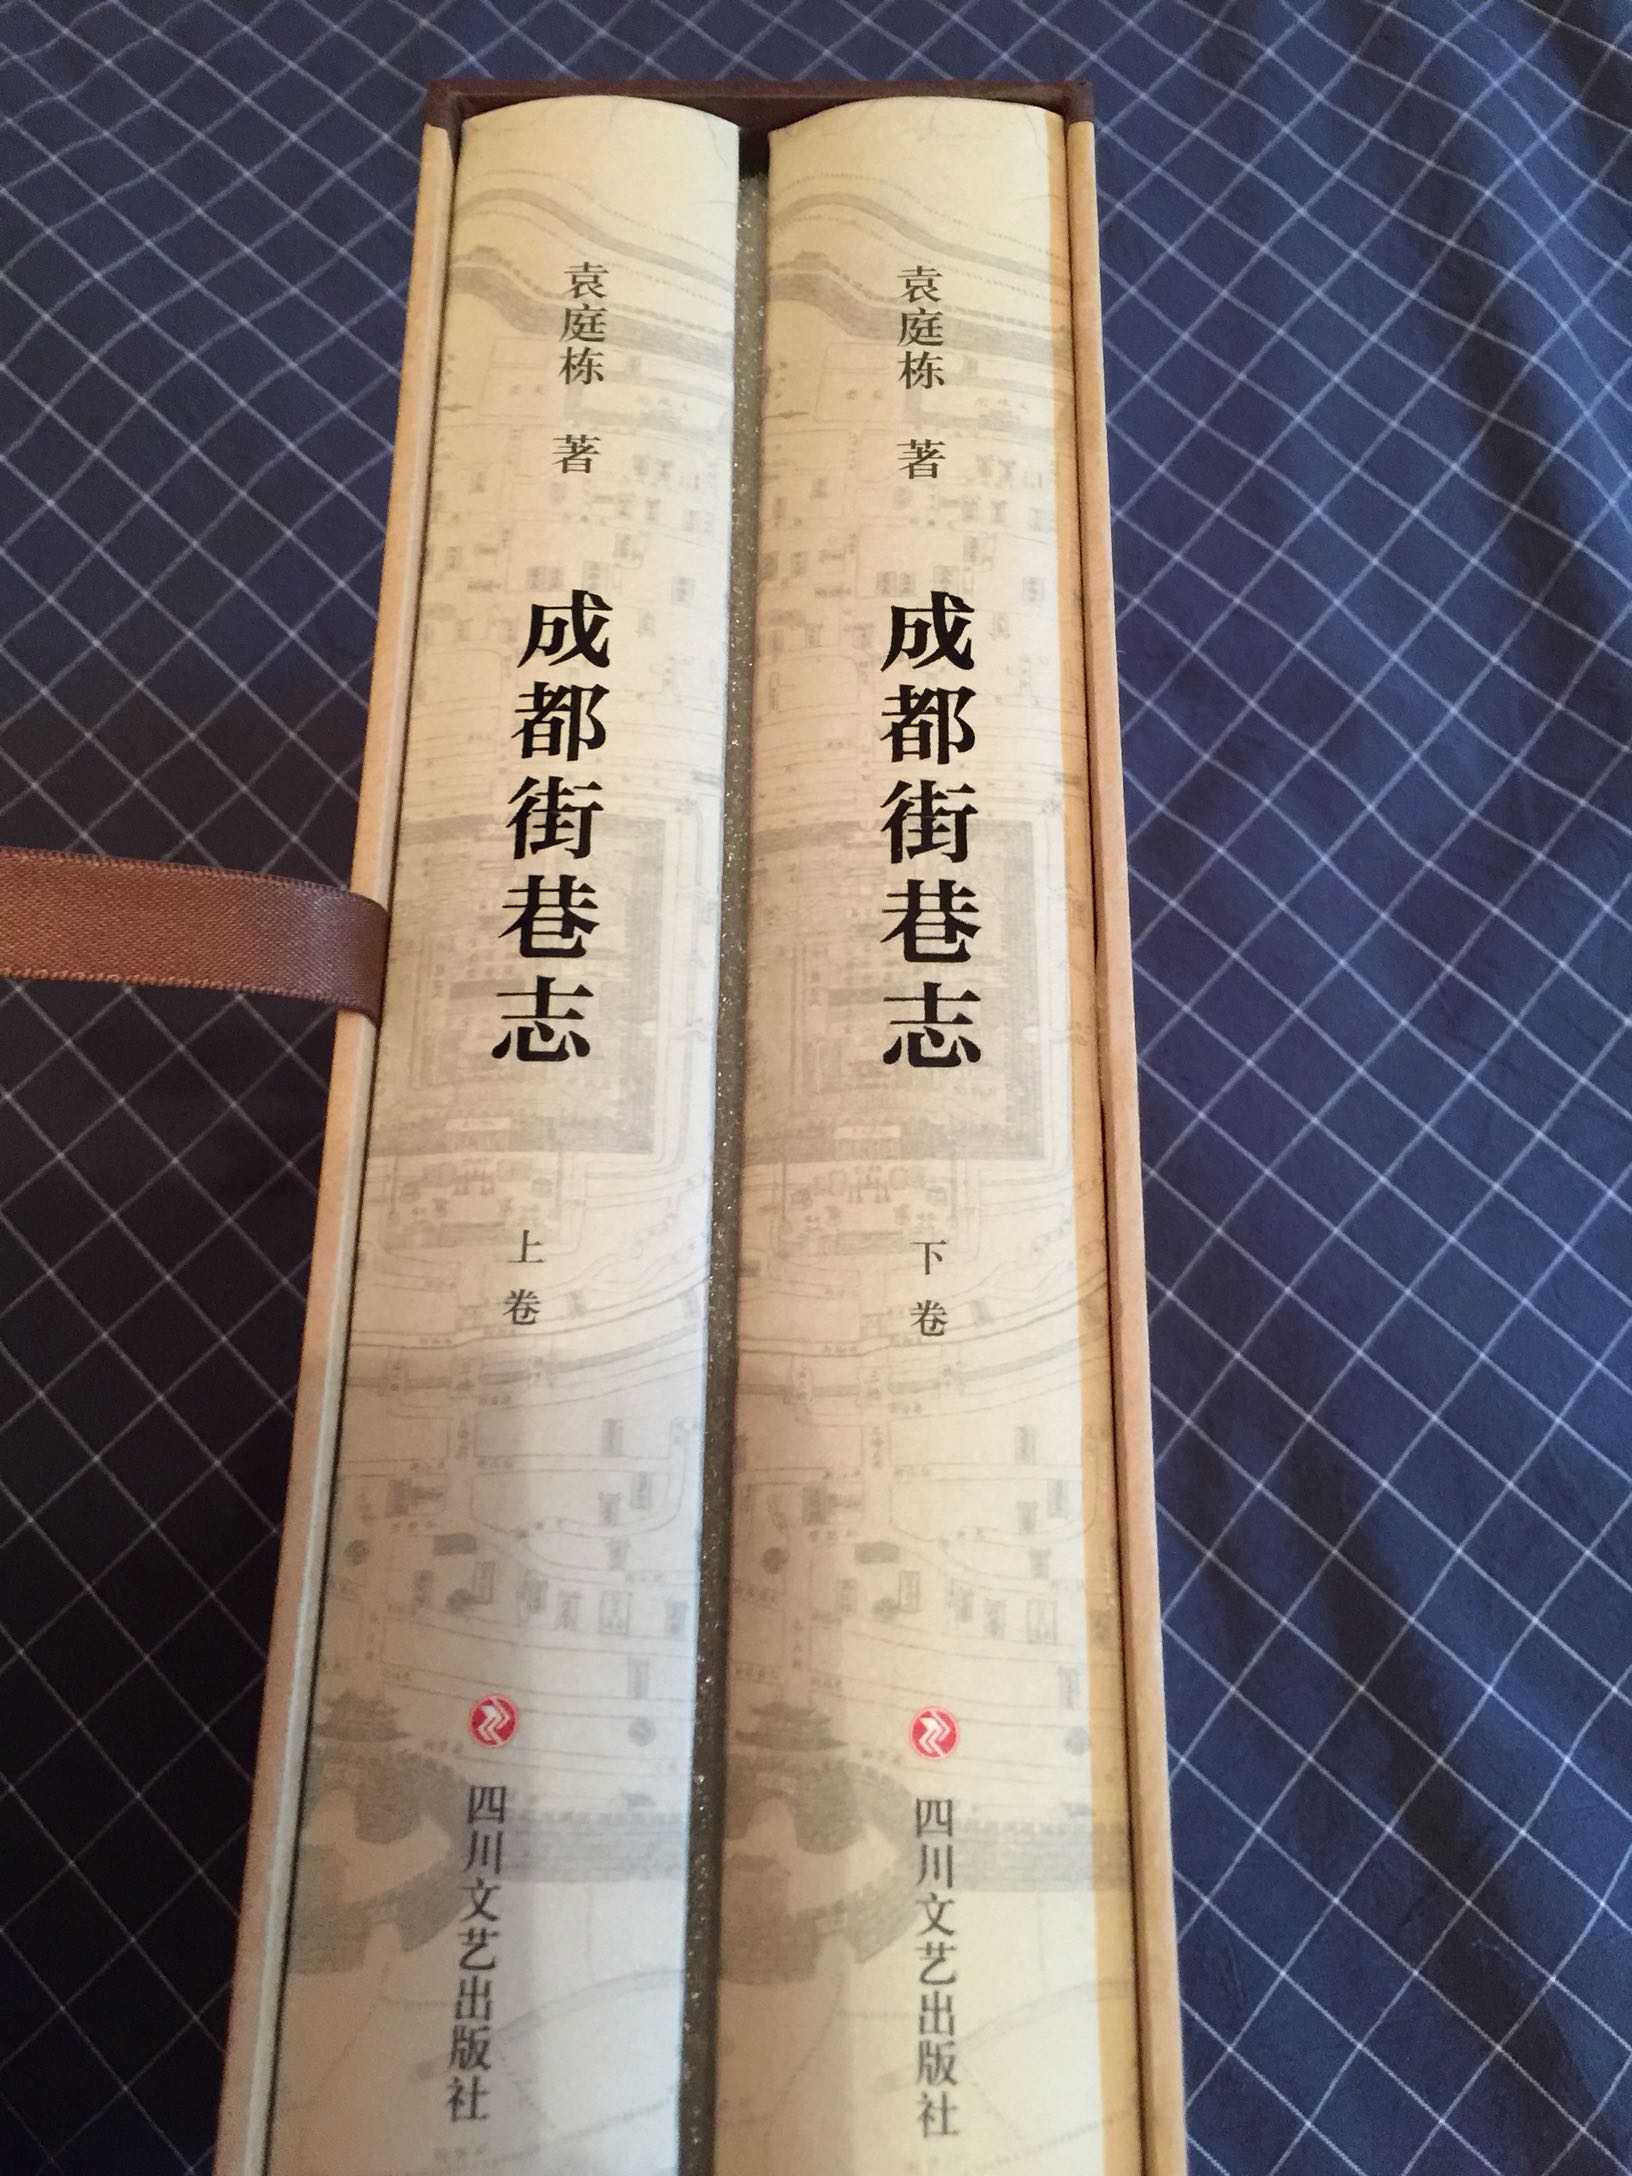 袁庭栋 著
成都街巷志
上卷
四川文艺出版社
袁庭栋 著
成都街巷志
下卷
四川文艺出版社